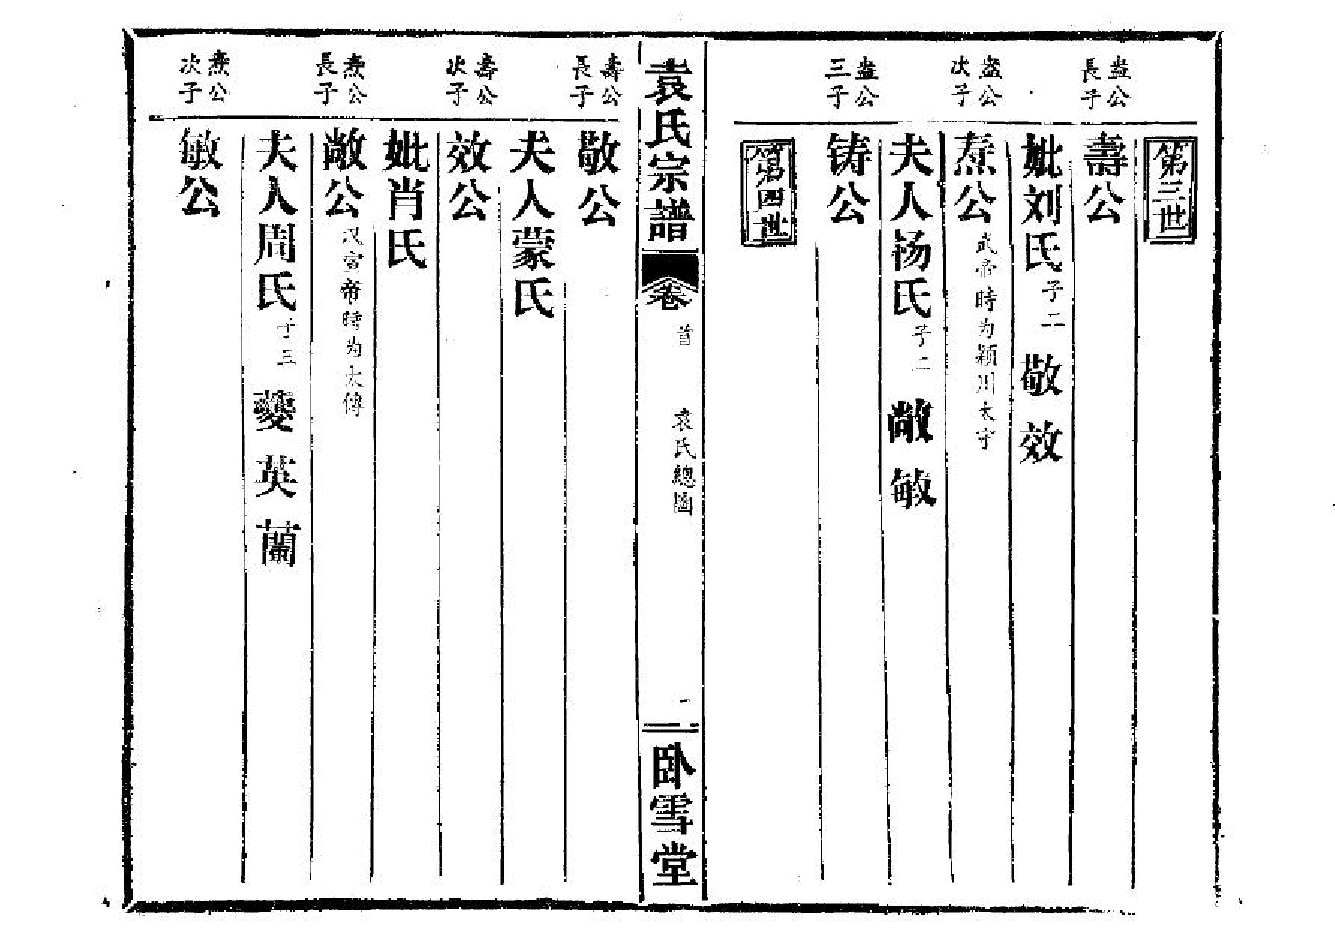 第三世
盎公長子
壽公
妣刘氏子二 敬 效
盎公次子
焘公武帝時为颖川太守
夫人杨氏子二 敞 敏
盎公三子
铸公
第四世
袁氏宗譜 卷首 袁氏總圖 一 卧雪堂
壽公長子
敬公
夫人蒙氏
壽公次子
效公
妣肖氏
焘公長子
敞公汉宣帝時为太傅
夫人周氏子三 夔 英 蘭
焘公次子
敏公